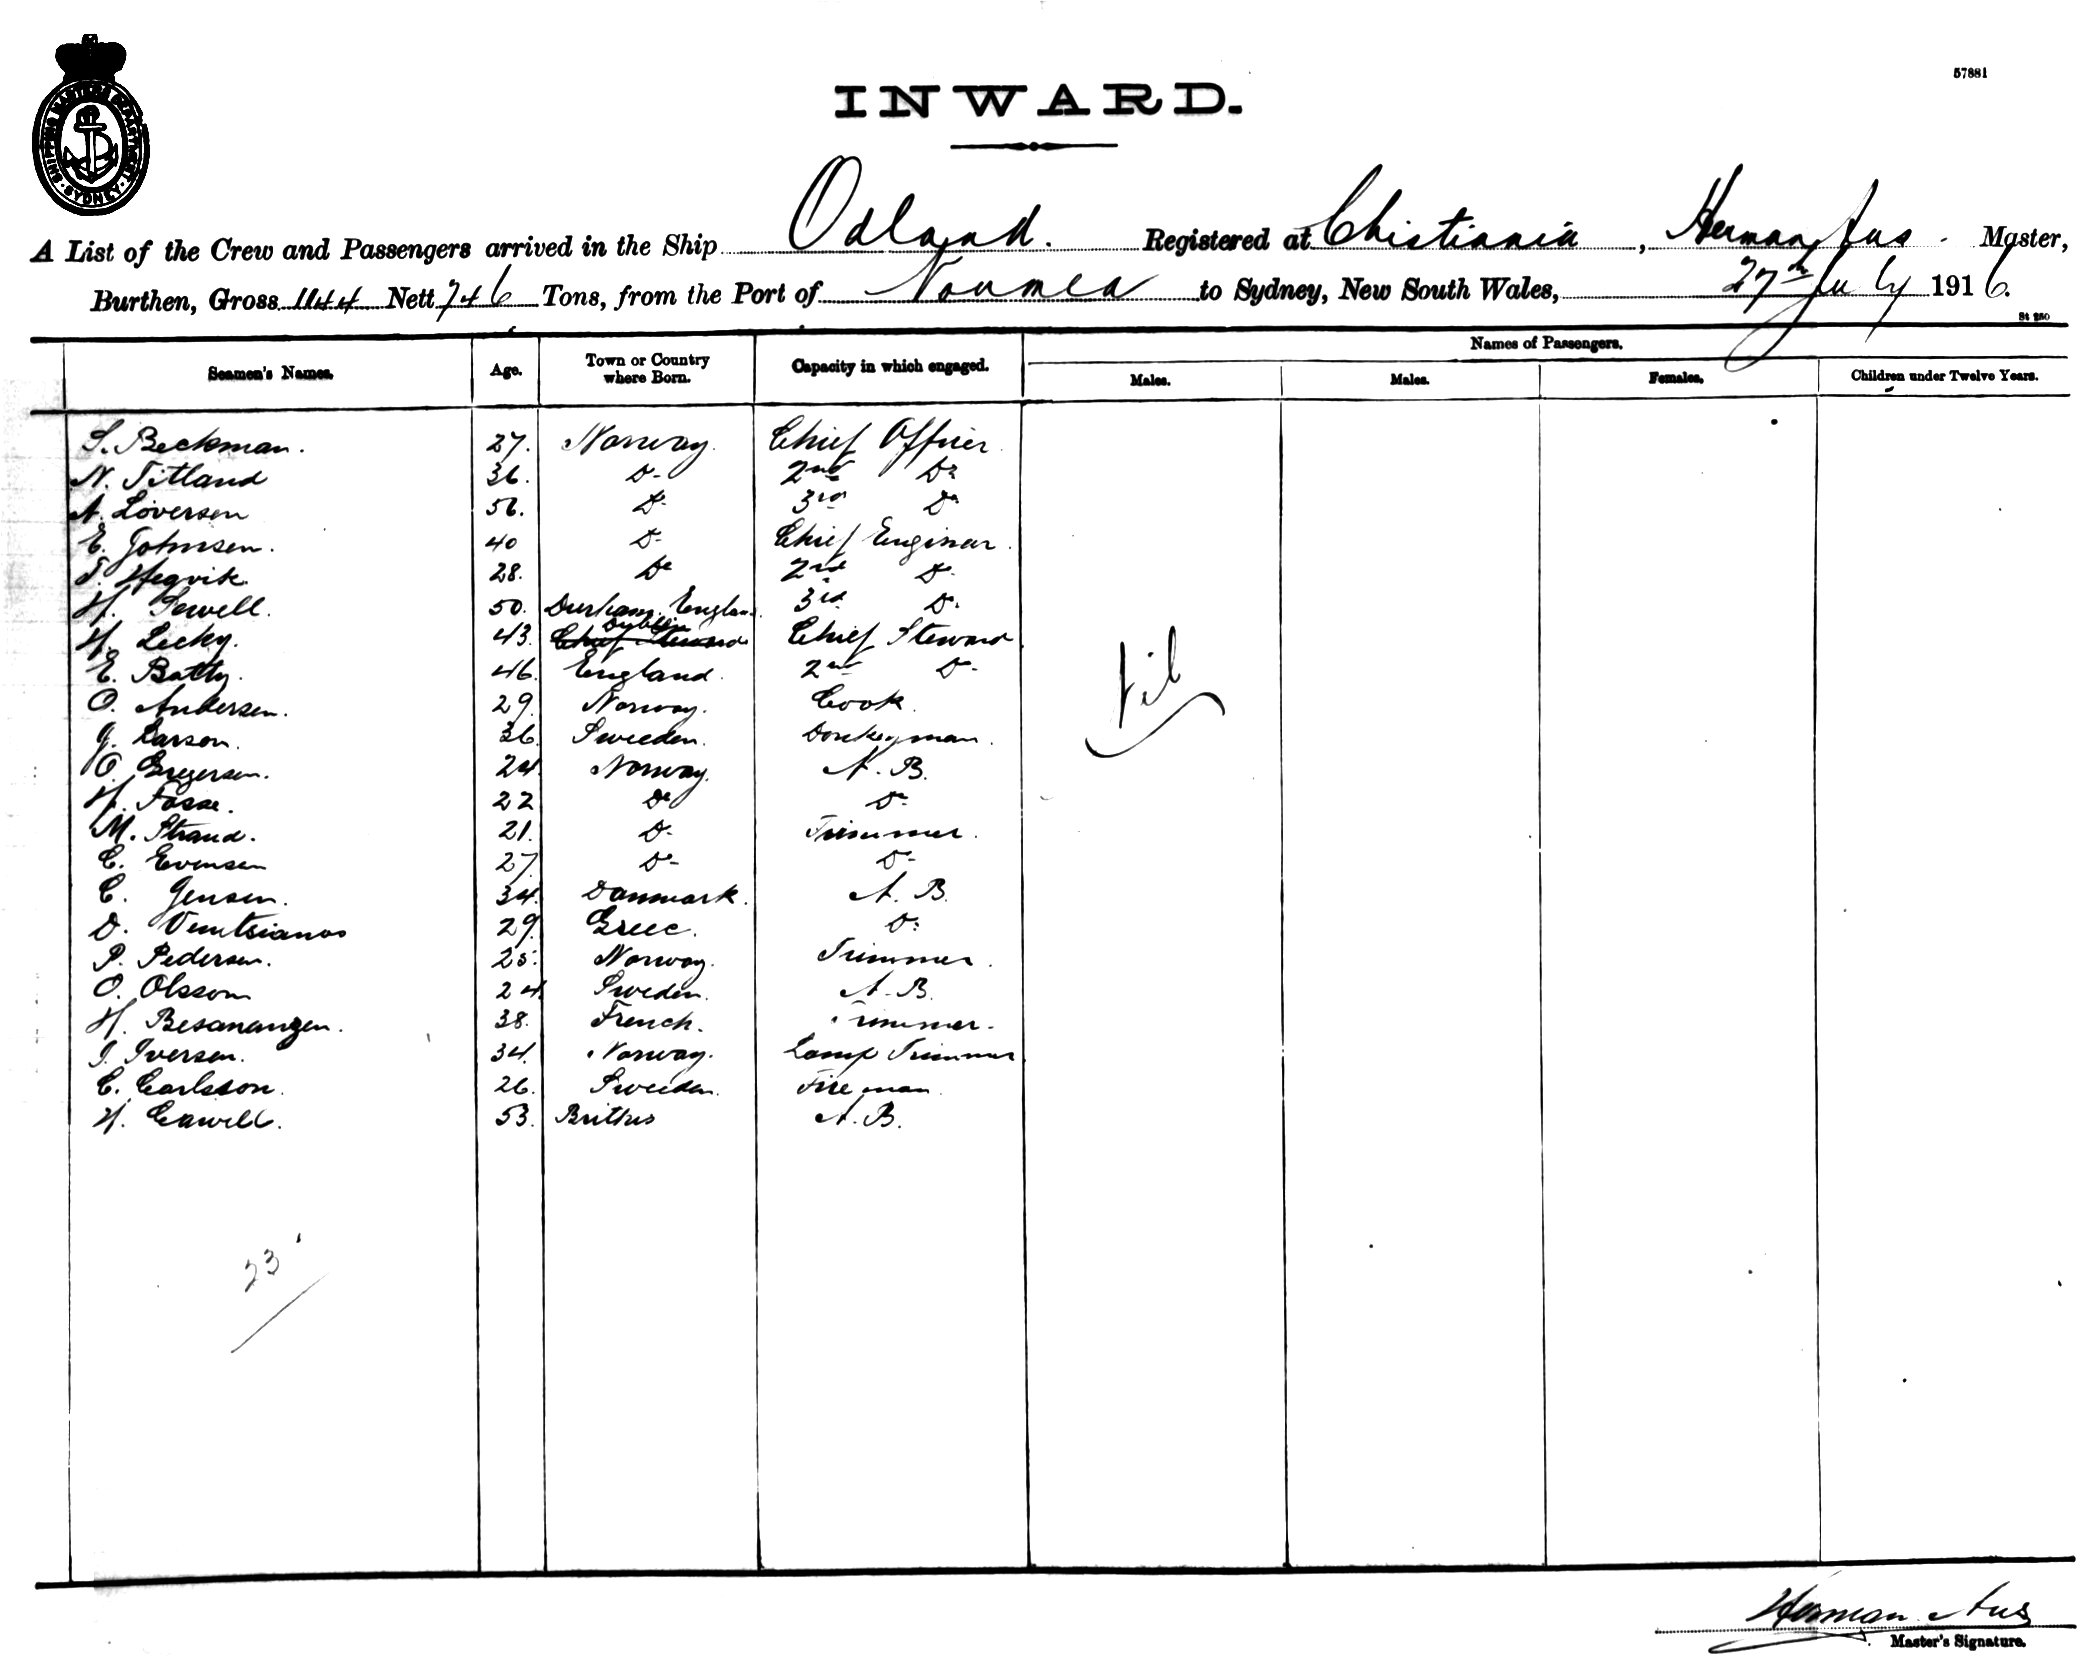 SHIPPING MASTERS DEPARTMENT. SYDNEY
57881
INWARD.
A List of the Crew and Passengers arrived in the Ship Odland. Registered at Christiania, Herman Aus. Master,
Burthen, Gross 1144 Nett 746 Tons, from the Port of Noumea to Sydney, New South Wales, 27th July 1916.
St 250
Seamen's Names. Age. Town or Country where Born. Capacity in which engaged. Names of Passengers.
Males. Males. Females. Children under Twelve Years.
S. Beckman. 27. Norway. Chief Officer
N. Titland 36. Do 2nd Do
A. Loversen 56. Do 3rd Do
E. Johnsen. 40 Do Chief Enginer.
T. Hegvik. 28. Do 2nd Do
H. Sewell. 50. Durham. Englan. 3rd Do.
H. Lecky. 43. Dublin Chief Steward
E. Batty. 46. England. 2nd Do
O. Andersen. 29. Norway. Cook.
J. Larson. 36. Sweeden. Donkeyman.
O. Gregersen. 24 Norway. A. B.
H. Fosse. 22 Do Do
M. Strand. 21. Do Trimmer.
C. Evensen 27 Do Do
C. Jensen. 34. Danmark. A. B.
D. Ventsianos 29. Greec. Do
P. Pedersen. 25. Norway. Trimmer.
O. Olsson 24. Sweden. A. B.
H. 38. French. Trimmer.
I. Iversen. 34. Norway. Lamp Trimmer
C. Carlsson. 26. Sweeden. Fireman.
H. Cawell. 53. A. B.
Nil
23
Herman Aus
Master's Signature.